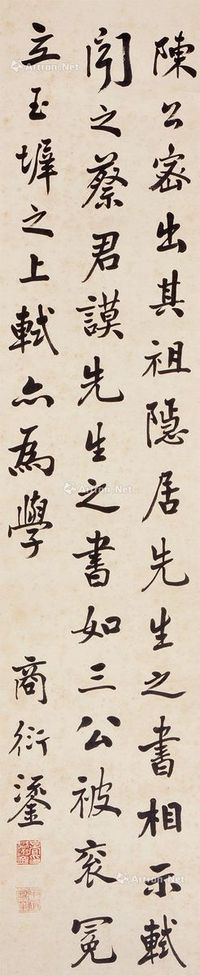 陳公密出其祖隱居先生之書相示軾
聞之蔡君謨先生之書如三公被衮冕
立玉墀之上軾亦為學
商衍鎏